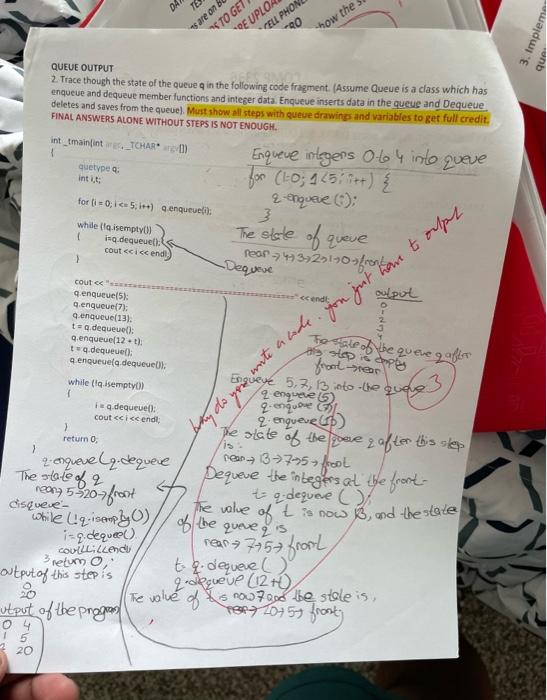 how the s
CELL PHONE
3. Impleme
QUEUE OUTPUT
2. Trace though the state of the queue q in the following code fragment. (Assume Queue is a class which has
enqueue and dequeue member functions and integer data. Enqueue inserts data in the queue and Dequeue
deletes and saves from the queue). Must show all steps with queue drawings and variables to get full credit.
FINAL ANSWERS ALONE WITHOUT STEPS IS NOT ENOUGH.
int _tmain(int argc, _TCHAR* argv[])
{
quetype q;
int i,t;
for (i = 0; i <= 5; i++) q.enqueue(i);
while (!q.isempty())
{ i=q.dequeue();
cout << i << endl;
}
cout << "
" << endl;
q.enqueue(5);
q.enqueue(7);
q.enqueue(13);
t = q.dequeue();
q.enqueue(12 + t);
t = q.dequeue();
q.enqueue(q.dequeue());
while (!q.isempty())
{
i = q.dequeue();
cout << i << endl;
}
return 0;
}
Enqueue integers 0 to 4 into queue
for (i=0; i<5; i++) {
q.enqueue(i);
}
The state of queue
rear→4→3→2→1→0→front
Dequeue
output
0
1
2
3
4
The state of the queue q after
this step is empty
front→rear
Enqueue 5, 7, 13 into the queue
q.enqueue(5)
q.enqueue(7)
The state of the queue q after this step
is:
rear→13→7→5→front
Dequeue the integers at the front
t = q.dequeue();
The value of t is now 13, and the state
of the queue q is
rear→7→5→front
t = q.dequeue()
q.dequeue(12+t)
The value of t is now 7 and the state is,
rear→20→5→front
q.enqueue(q.dequeue
The state of q
rear→5→20→front
while (!q.isempty())
i=q.dequeue().
return 0;
output of this step is
20
utput of the program
0 4
1 5
2 20
why do you write a code. you just have to output
3